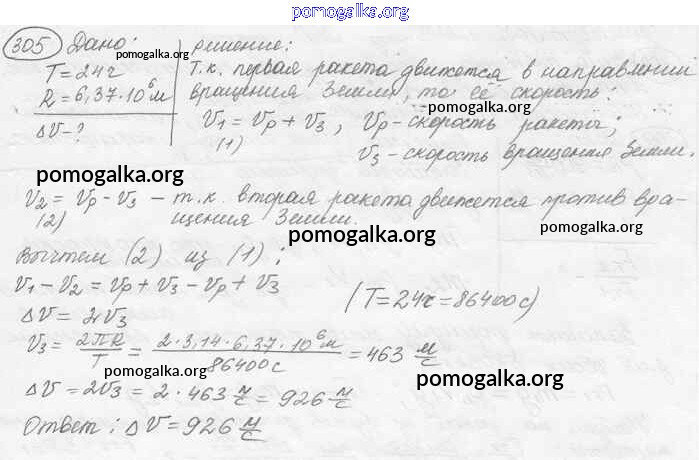 pomogalka.org
305 Дано: Решение:
pomogalka.org
T = 24ч
R = 6,37·10⁶м
ΔV - ?
Т.к. первая ракета движется в направлении
вращения Земли, то её скорость:
pomogalka.org
V₁ = Vр + V₃ , Vр - скорость ракеты;
(1)
V₃ - скорость вращения Земли.
pomogalka.org
pomogalka.org
V₂ = Vр - V₃ - т.к. вторая ракета движется против вра-
(2) щения Земли.
pomogalka.org
pomogalka.org
Вычтем (2) из (1):
V₁ - V₂ = Vр + V₃ - Vр + V₃
(T = 24ч = 86400с)
ΔV = 2V₃
V₃ = 2πR/T = 2·3,14·6,37·10⁶м/86400с = 463 м/с
pomogalka.org
pomogalka.org
ΔV = 2V₃ = 2·463 м/с = 926 м/с
Ответ: ΔV = 926 м/с
pomogalka.org